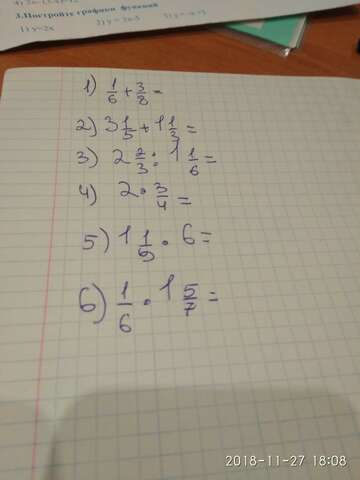 3.Постройте графики функций
1) y=2x
1) 1/6 + 3/8 =
2) 3 1/5 + 1 1/3 =
3) 2 2/3 : 1 1/6 =
4) 2 · 3/4 =
5) 1 1/9 · 6 =
6) 1/6 · 1 5/7 =
2018-11-27 18:08